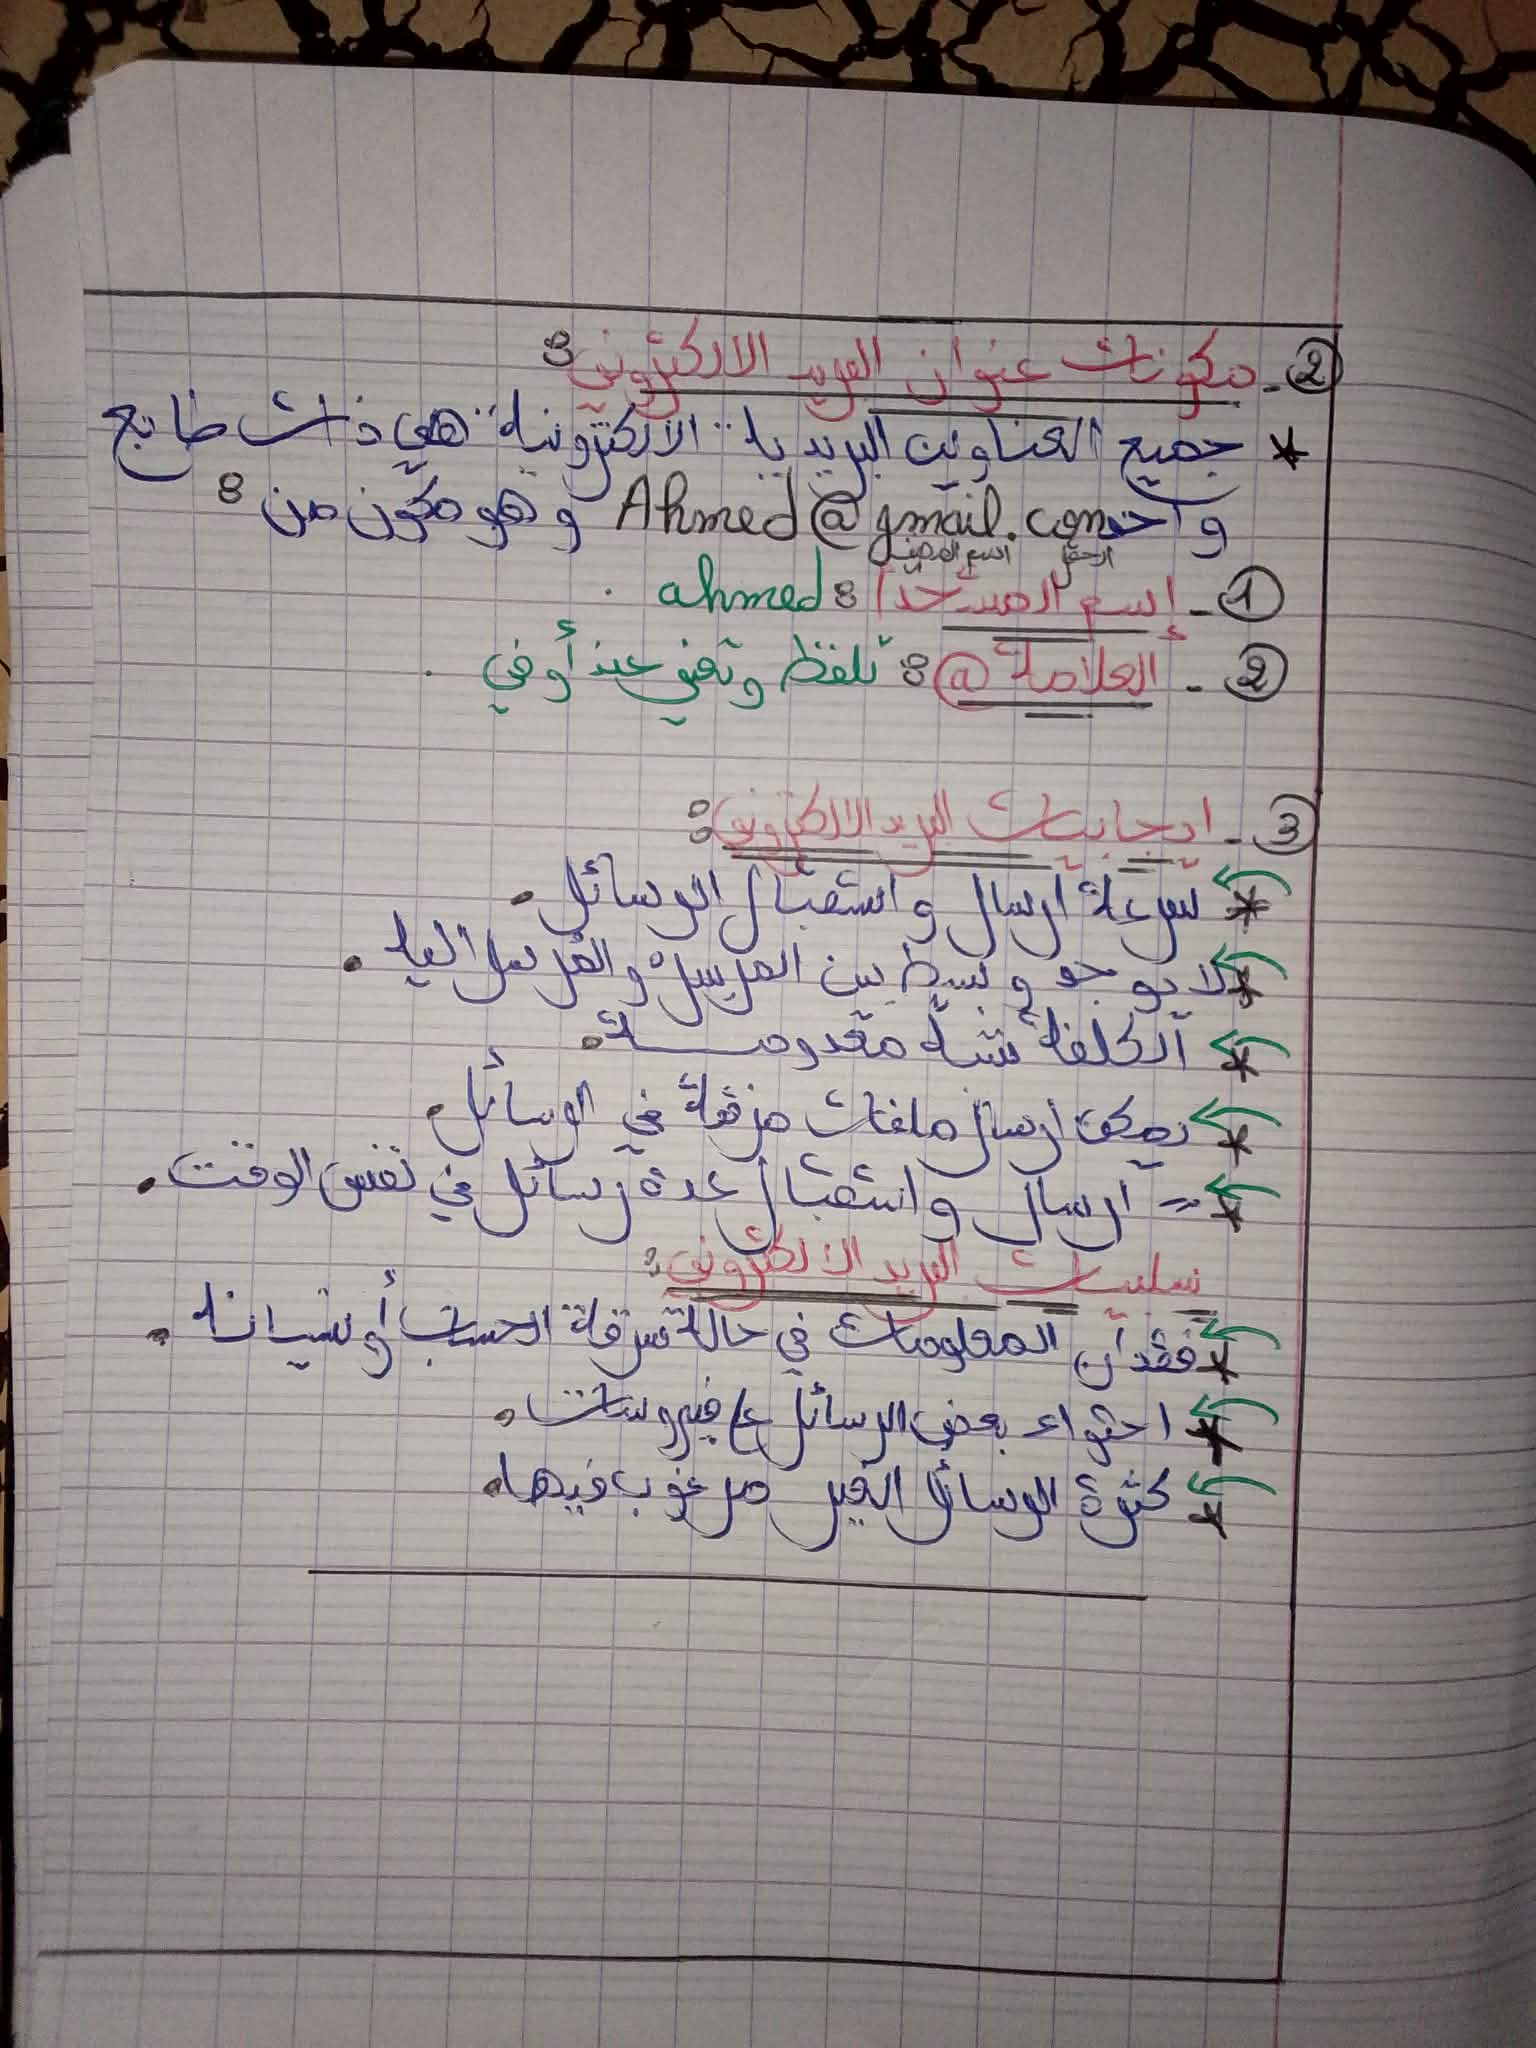 2- مكونات عنوان البريد الالكتروني:
* جميع العناوين البريدية الالكترونية هي ذات طابع
واحد Ahmed@gmail.com وهو مكون من:
اسم المضيف الحقل
1- إسم المستخدم: ahmed.
2- العلامة @: تلفظ وتعني عند أو في.
3- ايجابيات البريد الالكتروني:
* سرعة ارسال واستقبال الرسائل.
* لا يوجد وسيط بين المرسل والمرسل اليه.
* الكلفة شبه معدومة.
* يمكن ارسال ملفات مرفقة في الرسائل.
* = ارسال واستقبال عدة رسائل في نفس الوقت.
سلبيات البريد الالكتروني:
* فقدان المعلومات في حالة سرقة الحساب أو نسيانه.
* احتواء بعض الرسائل ع/ فيروسات.
* كثرة الرسائل الغير مرغوب فيها.